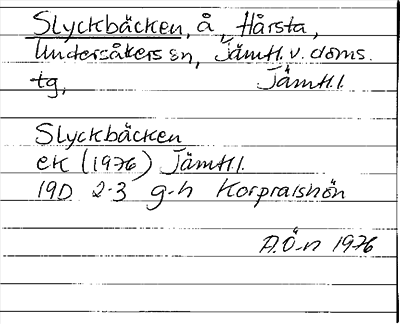 Slyckbäcken, å, Hårsta,
Undersåkers sn, Jämtl. v. doms.
tg, Jämtl.l.
Slyckbäcken
ek (1976) Jämtl.l.
19D 2-3 g-h Korpralshön
A.Ö-n 1976